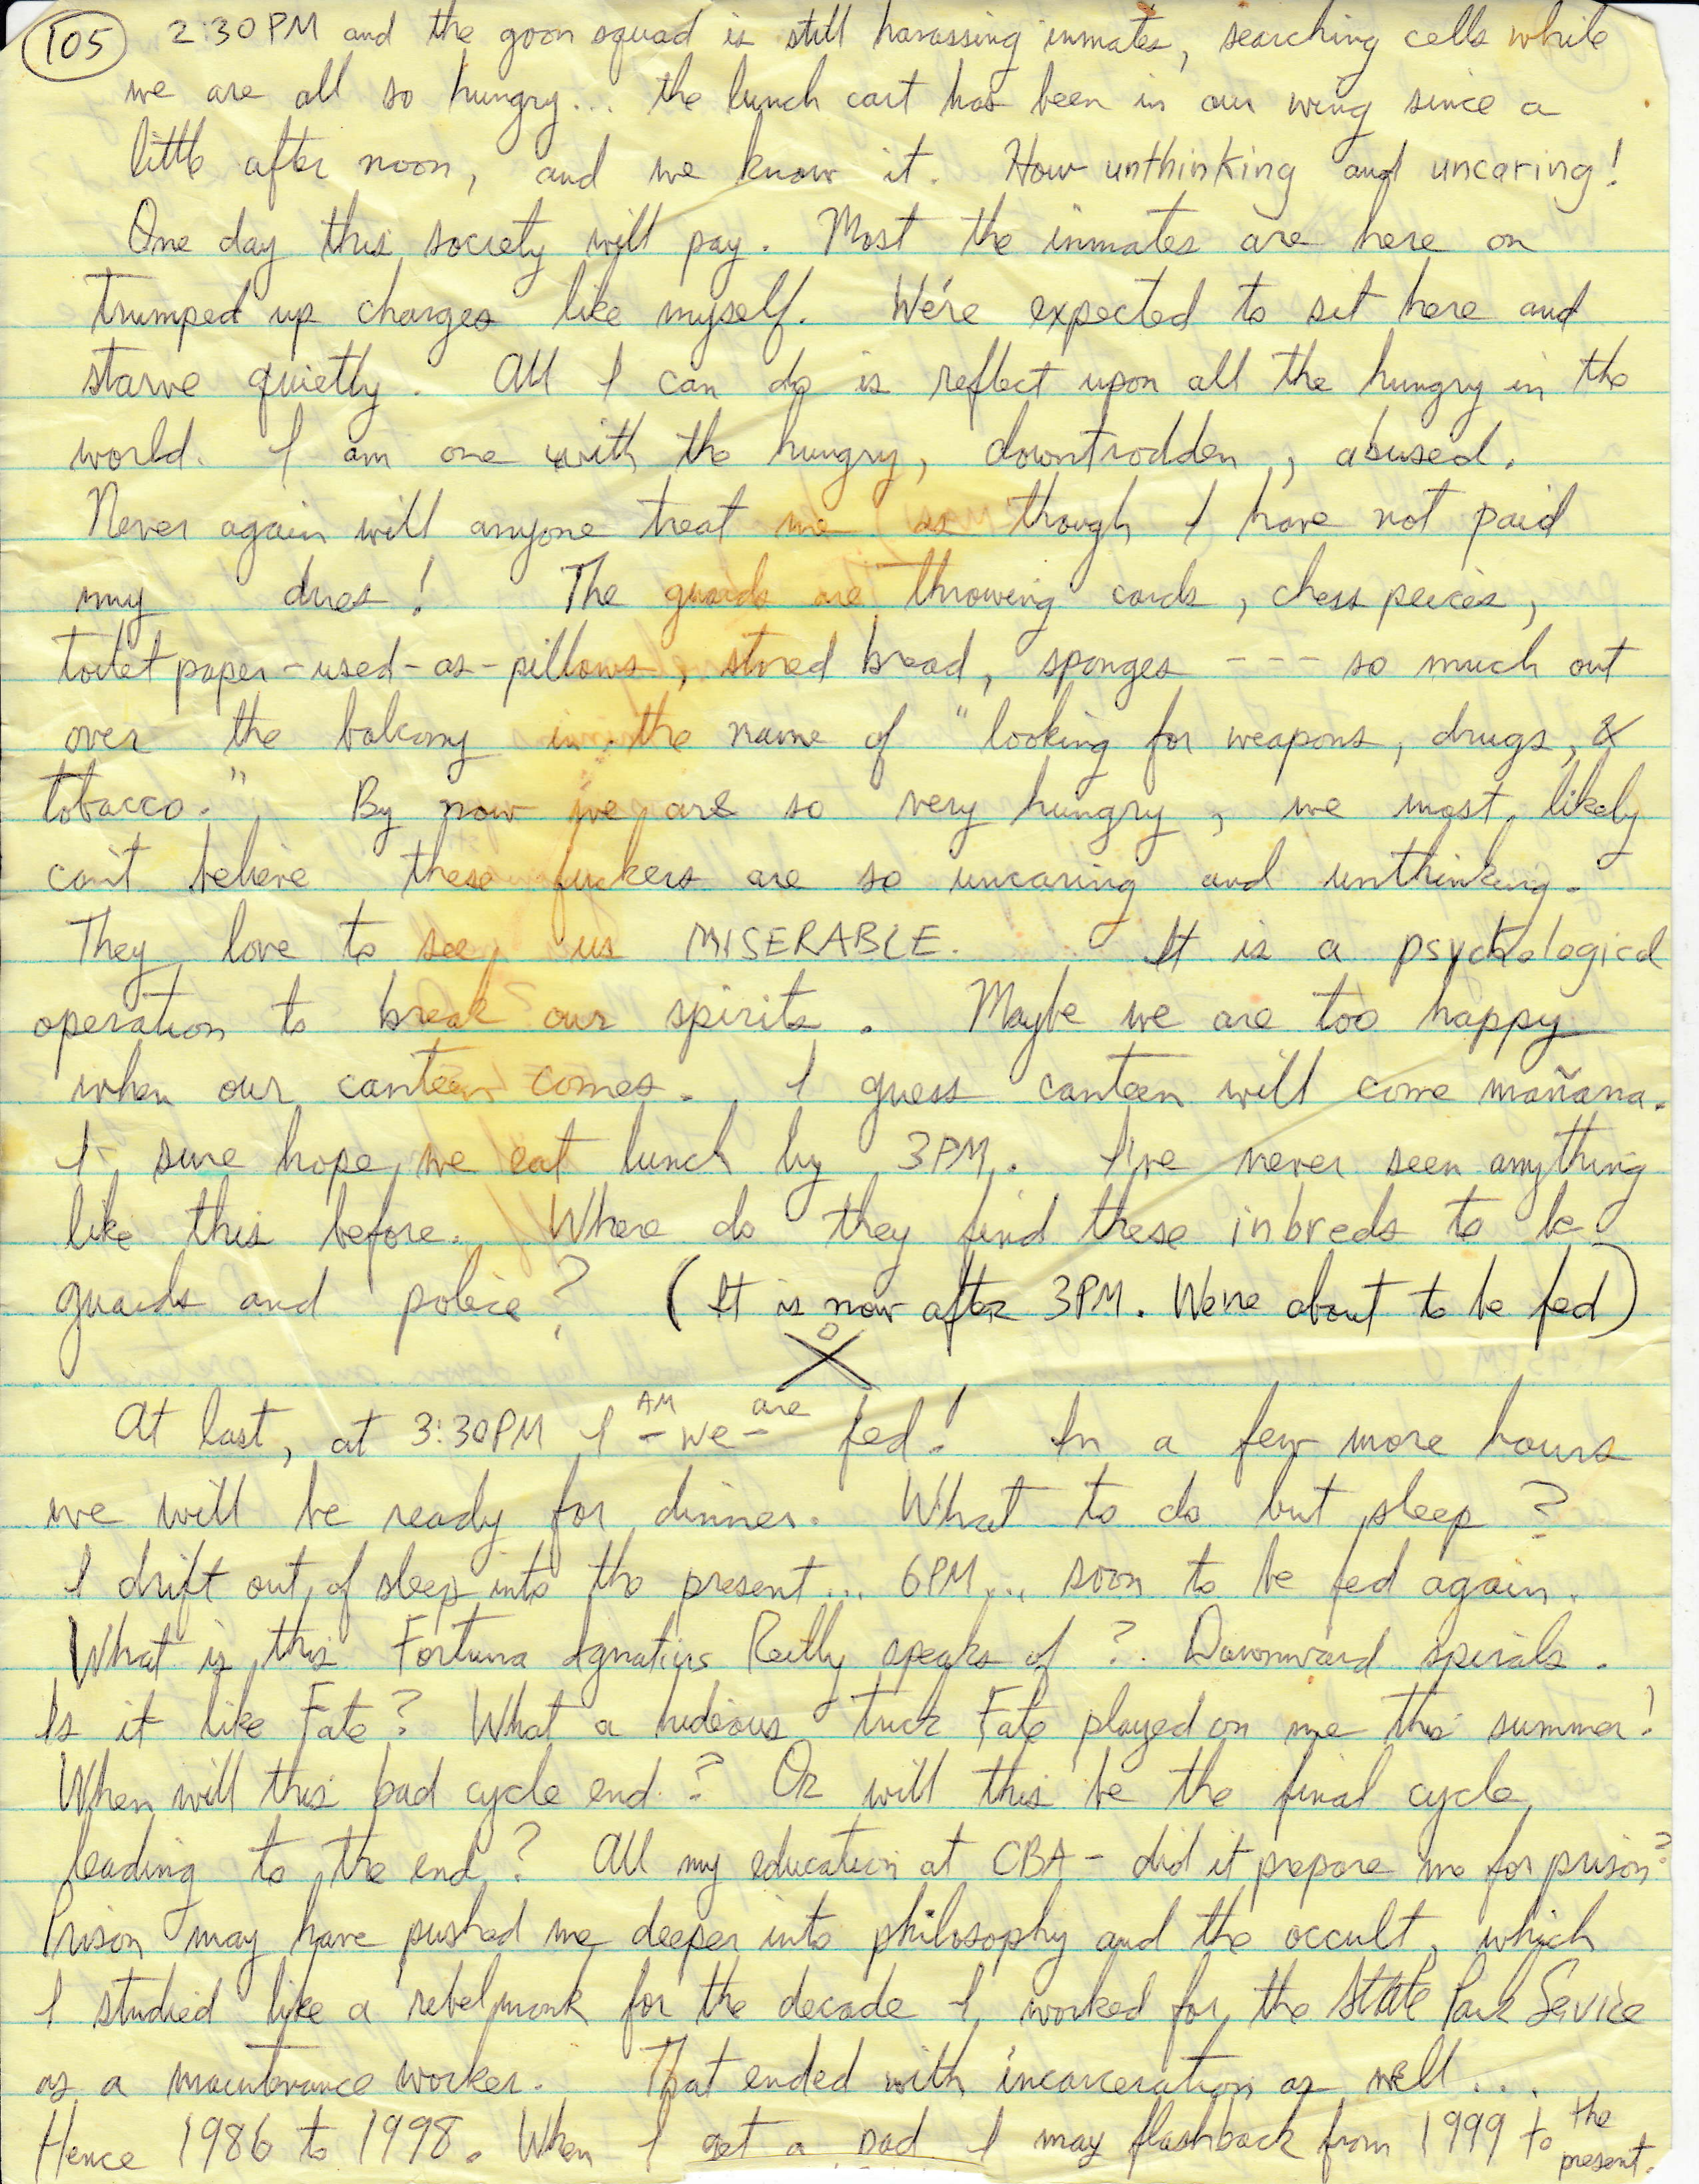 105 2:30PM and the goon squad is still harassing inmates, searching cells while
we are all so hungry... the lunch cart has been in our wing since a
little after noon, and we know it. How unthinking and uncaring!
One day this society will pay. Most the inmates are here on
trumped up charges like myself. We're expected to sit here and
starve quietly. All I can do is reflect upon all the hungry in the
world. I am one with the hungry, downtrodden, abused.
Never again will anyone treat me as though I have not paid
my dues! The guards are throwing cards, chess peices,
toilet paper-used-as-pillows, stored bread, sponges --- so much out
over the balcony in the name of "looking for weapons, drugs, &
tobacco." By now we are so very hungry, we most likely
can't believe these fuckers are so uncaring and unthinking.
They love to see us MISERABLE. It is a psychological
operation to break our spirits. Maybe we are too happy
when our canteen comes. I guess canteen will come mañana.
I sure hope we eat lunch by 3PM. I've never seen anything
like this before. Where do they find these inbreds to be
guards and police? (It is now after 3PM. We're about to be fed)
At last, at 3:30PM I AM -we- are fed! In a few more hours
we will be ready for dinner. What to do but sleep?
I drift out of sleep into the present... 6PM... soon to be fed again.
What is this Fortuna Ignatius Reilly speaks of? Downward spirals.
Is it like Fate? What a hideous trick Fate played on me this summer!
When will this bad cycle end? Or will this be the final cycle,
leading to the end? All my education at CBA - did it prepare me for prison?
Prison may have pushed me deeper into philosophy and the occult, which
I studied like a rebel monk for the decade I worked for the State Park Service
as a maintenance worker. That ended with incarceration as well...
Hence 1986 to 1998. When I get a pad I may flashback from 1999 to the present.